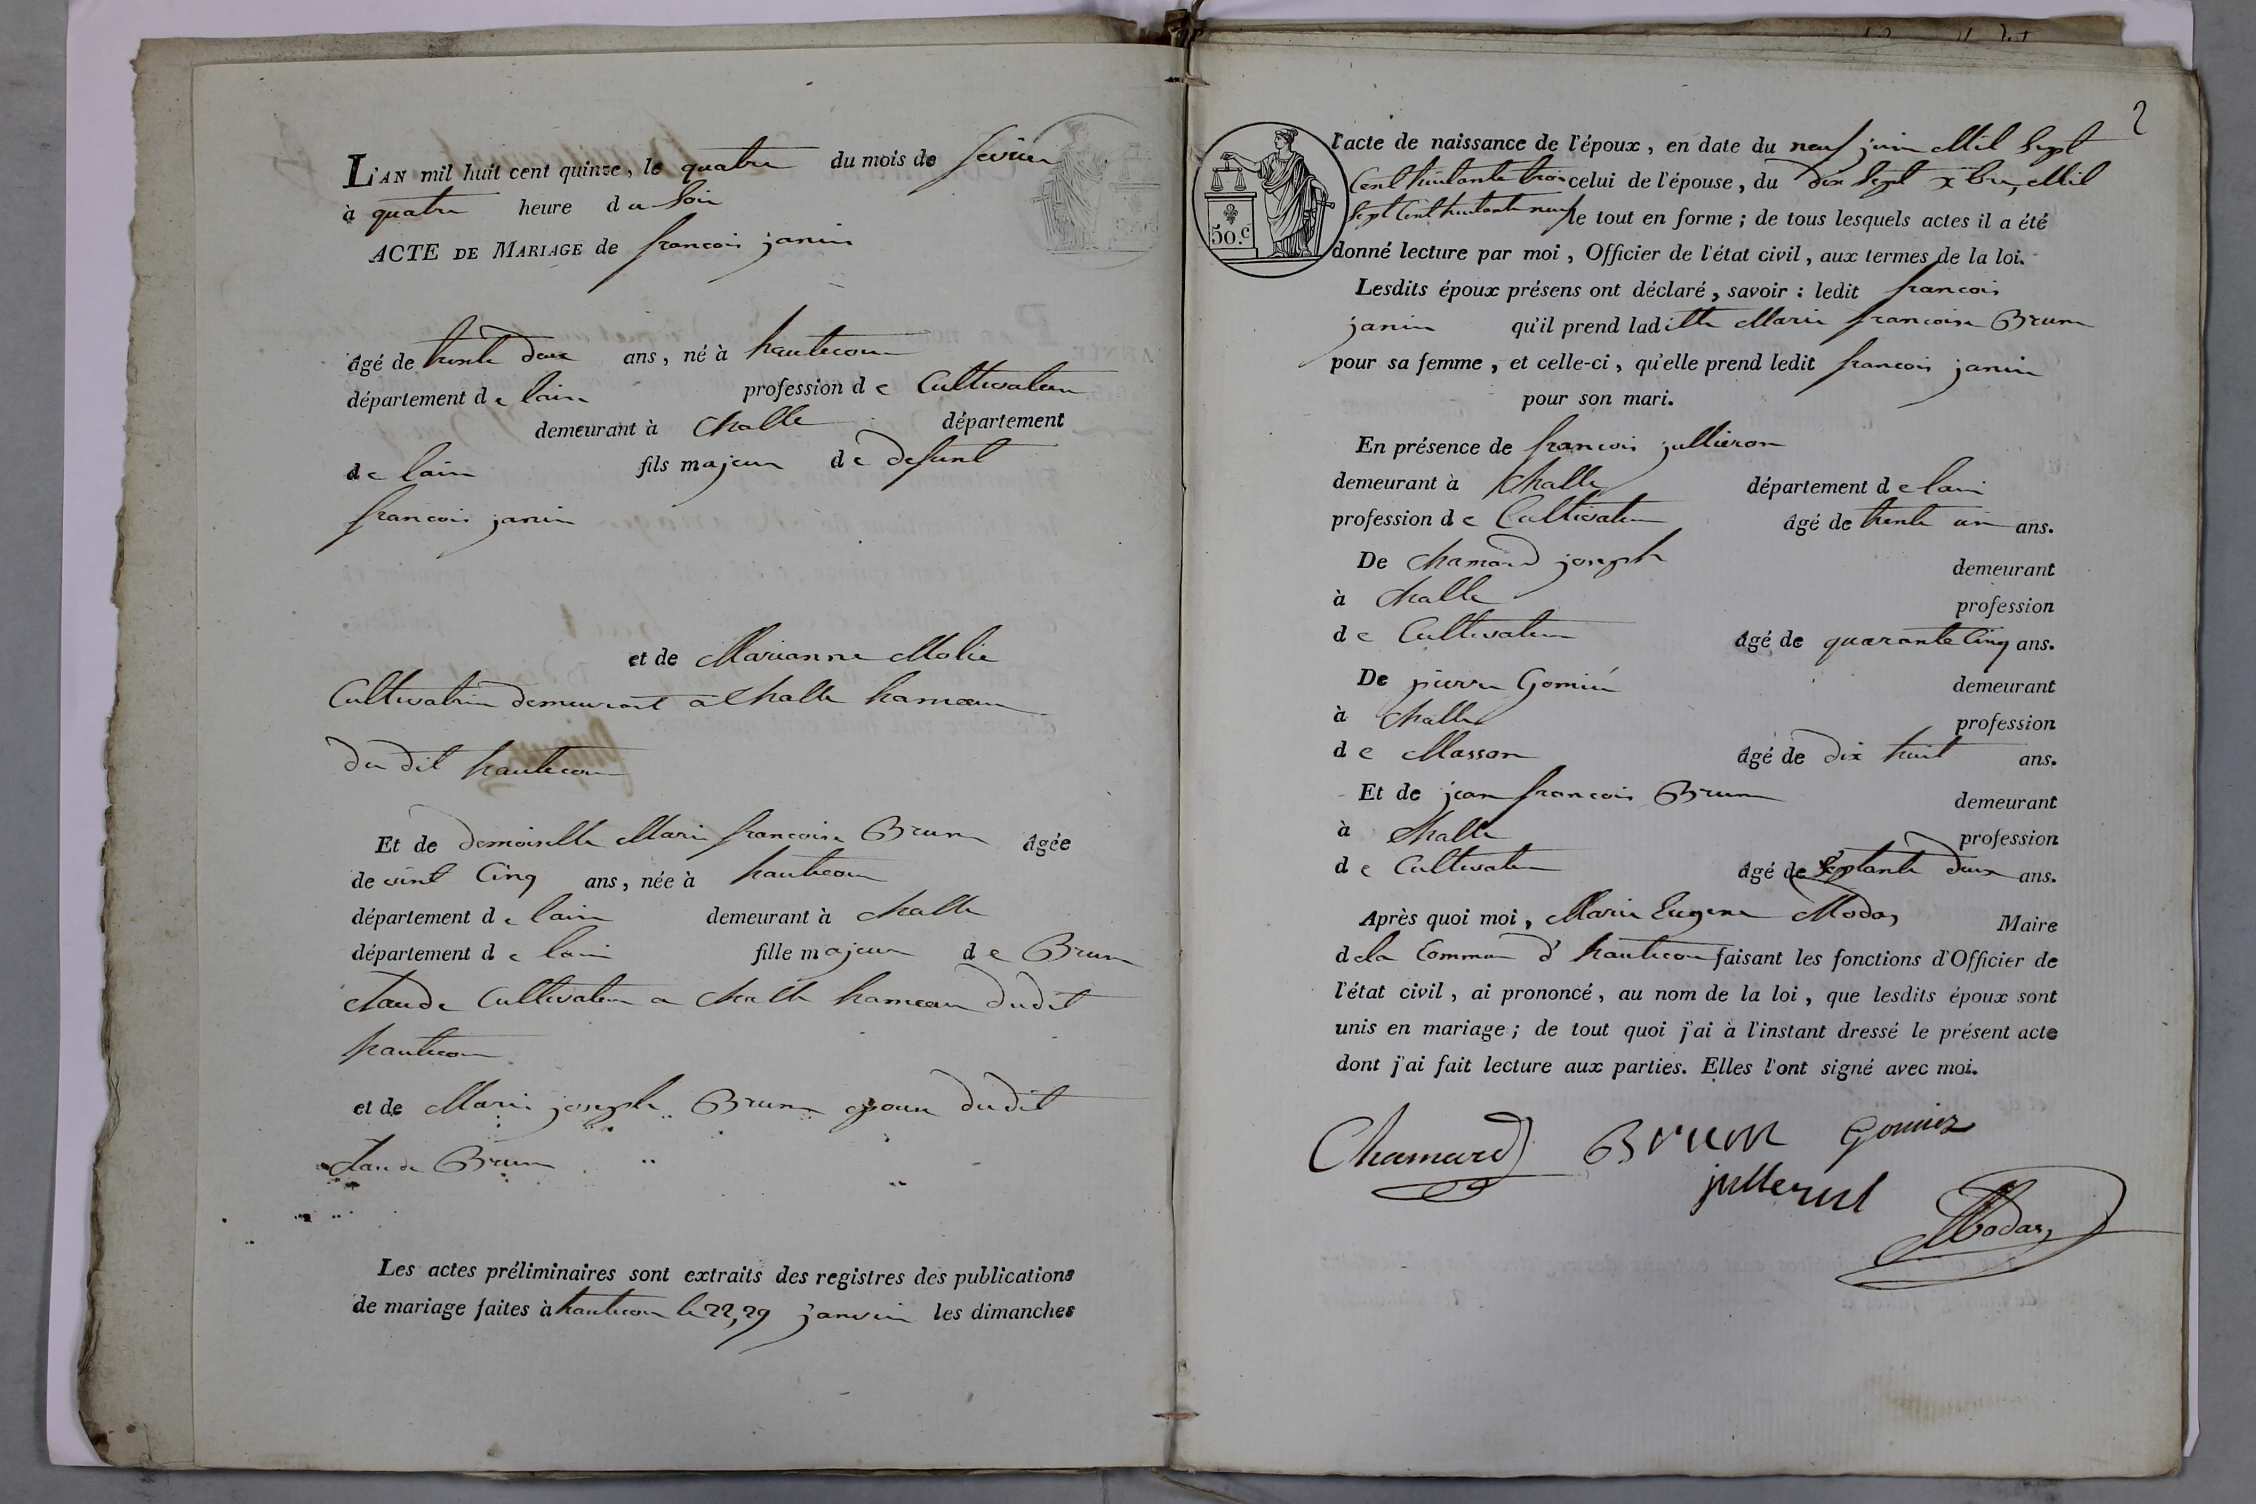 L'AN mil huit cent quinze, le quatre du mois de fevrier
à quatre heure du soir
ACTE DE MARIAGE de francois janin
âgé de trente deux ans, né à hautecour
département de lain profession de Cultivateur
demeurant à challe département
de lain fils majeur de defunt
francois janin
et de Marianne Molie
Cultivatrice demeurant a Challe hameau
du dit hautecour
Et de demoiselle Marie francoise Brun âgée
de vint Cinq ans, née à hautecour
département de lain demeurant à challe
département de lain fille majeur de Brun
claude Cultivateur a challe hameau dudit
hautecour
et de Marie joseph Brun epoux dudit
claude Brun
Les actes préliminaires sont extraits des registres des publications
de mariage faites à hautecour le 22, 29 janvier les dimanches
2
50.c
l'acte de naissance de l'époux, en date du neuf juin Mil Sept
Cent huitante trois celui de l'épouse, du dix Sept xbre, Mil
Sept Cent huitante neuf le tout en forme; de tous lesquels actes il a été
donné lecture par moi, Officier de l'état civil, aux termes de la loi.
Lesdits époux présens ont déclaré, savoir: ledit francois
janin qu'il prend laditte Marie francoise Brun
pour sa femme, et celle-ci, qu'elle prend ledit francois janin
pour son mari.
En présence de francois jullieron
demeurant à challe département de lain
profession de Cultivateur âgé de trente un ans.
De Chamard joseph demeurant
à challe profession
de Cultivateur âgé de quarante Cinq ans.
De pierre Gomié demeurant
à challe profession
de Masson âgé de dix huit ans.
Et de jean francois Brun demeurant
à challe profession
de Cultivateur âgé de Septante deux ans.
Après quoi moi, Marie Eugene Modas Maire
de la Commune d'hautecour faisant les fonctions d'Officier de
l'état civil, ai prononcé, au nom de la loi, que lesdits époux sont
unis en mariage; de tout quoi j'ai à l'instant dressé le présent acte
dont j'ai fait lecture aux parties. Elles l'ont signé avec moi.
Chamard Brun Gomiez
Modas